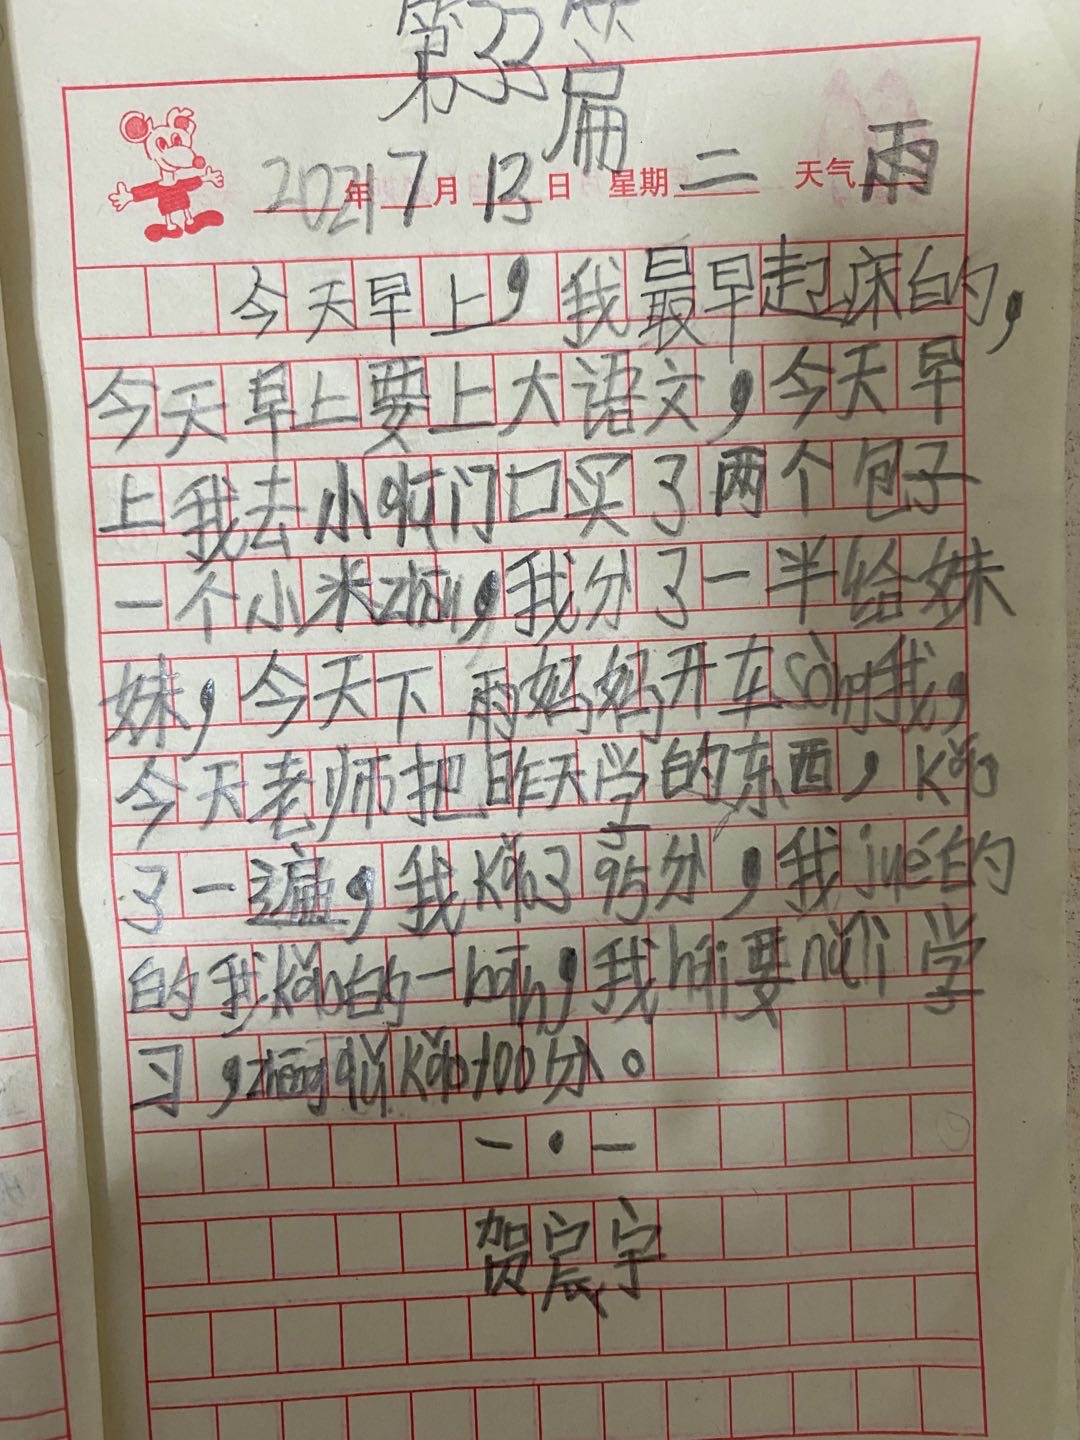 第33篇
2021年7月13日 星期二 天气雨
今天早上，我最早起床的，
今天早上要上大语文，今天早
上我去小qū门口买了两个包子
一个小米zhōu，我分了一半给妹
妹，今天下雨妈妈开车sòng我，
今天老师把昨天学的东西，kǎo
了一遍，我kǎo了95分，我jué的
的我kǎo的一bān，我hái要nǔlì学
习，zhēng qǔ kǎo100分。
一·一
贺宸宇